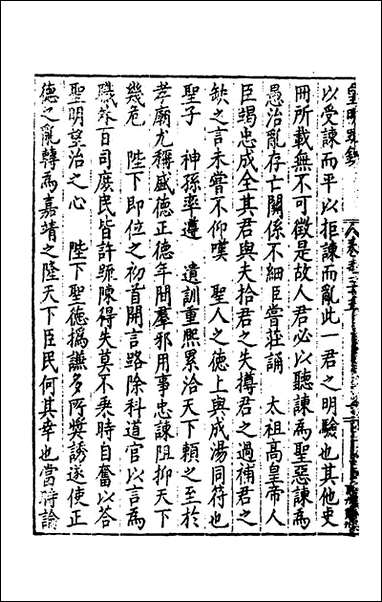 皇明疏鈔
以受諫而平以拒諫而亂此一君之明驗也其他史
冊所載無不可徵是故人君必以聽諫為聖惡諫為
愚治亂存亡關係不細臣嘗莊誦　太祖高皇帝人
臣竭忠成全其君與夫拾君之失摶君之過補君之
缺之言未嘗不仰嘆　聖人之德上與成湯同符也
聖子　神孫率遵　遺訓重熈累洽天下賴之至於
孝廟尤稱盛德正德年間羣邪用事忠諫阻抑天下
幾危　陛下即位之初首開言路除科道官以言為
職外百司庶民皆許疏陳得失莫不乘時自奮以荅
聖明望治之心　陛下聖德撝謙多所獎誘遂使正
德之亂轉為嘉靖之隆天下臣民何其幸也當時論